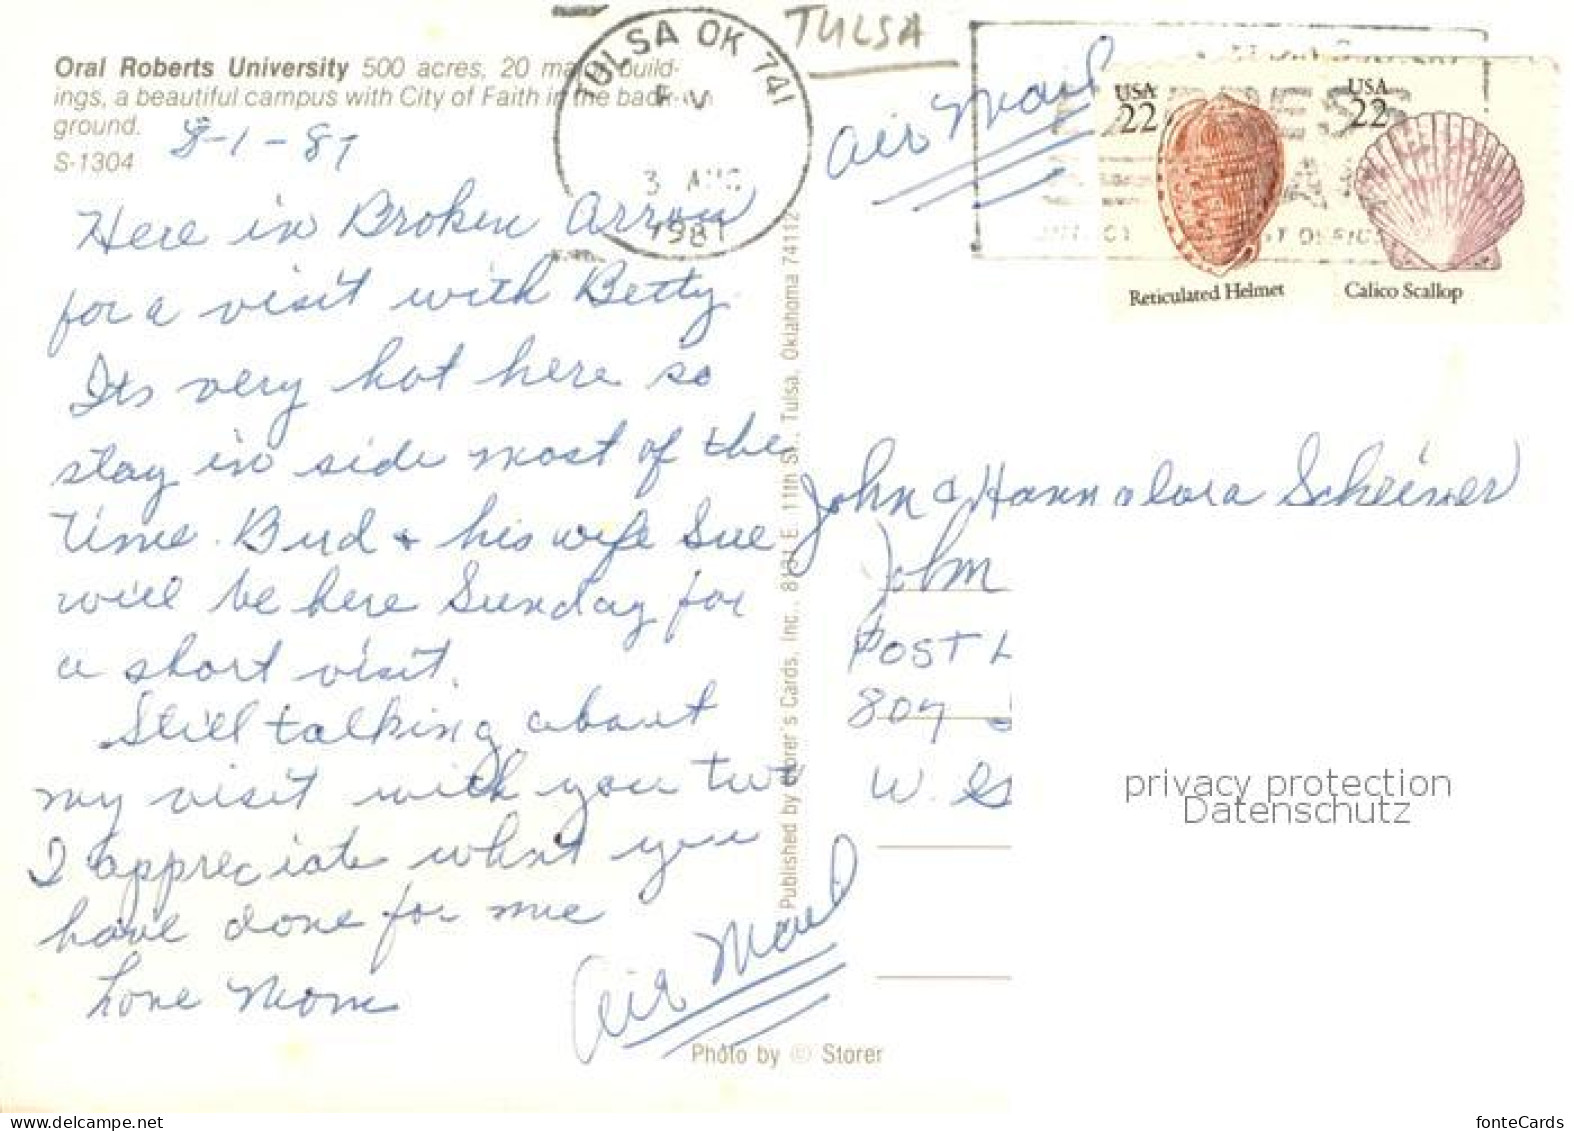 Oral Roberts University 500 acres, 20 major build-
ings, a beautiful campus with City of Faith in the back-
ground.
S-1304
8-1-87
TULSA OK 741
3 AUG
1987
TULSA
Air Mail
USA
22
Reticulated Helmet
USA
22
Calico Scallop
Here in Broken Arrow
for a visit with Betty
Its very hot here so
stay in side most of the
time. Bud + his wife Sue
will be here Sunday for
a short visit.
Still talking about
my visit with you two
I appreciate what you
have done for me
Love Mom
Air Mail
Published by Storer's Cards, Inc., 8131 E. 11th St., Tulsa, Oklahoma 74112
Photo by © Storer
John & Hannalora Scheiner
John
POST
807
W.
privacy protection
Datenschutz
www.delcampe.net
fonteCards